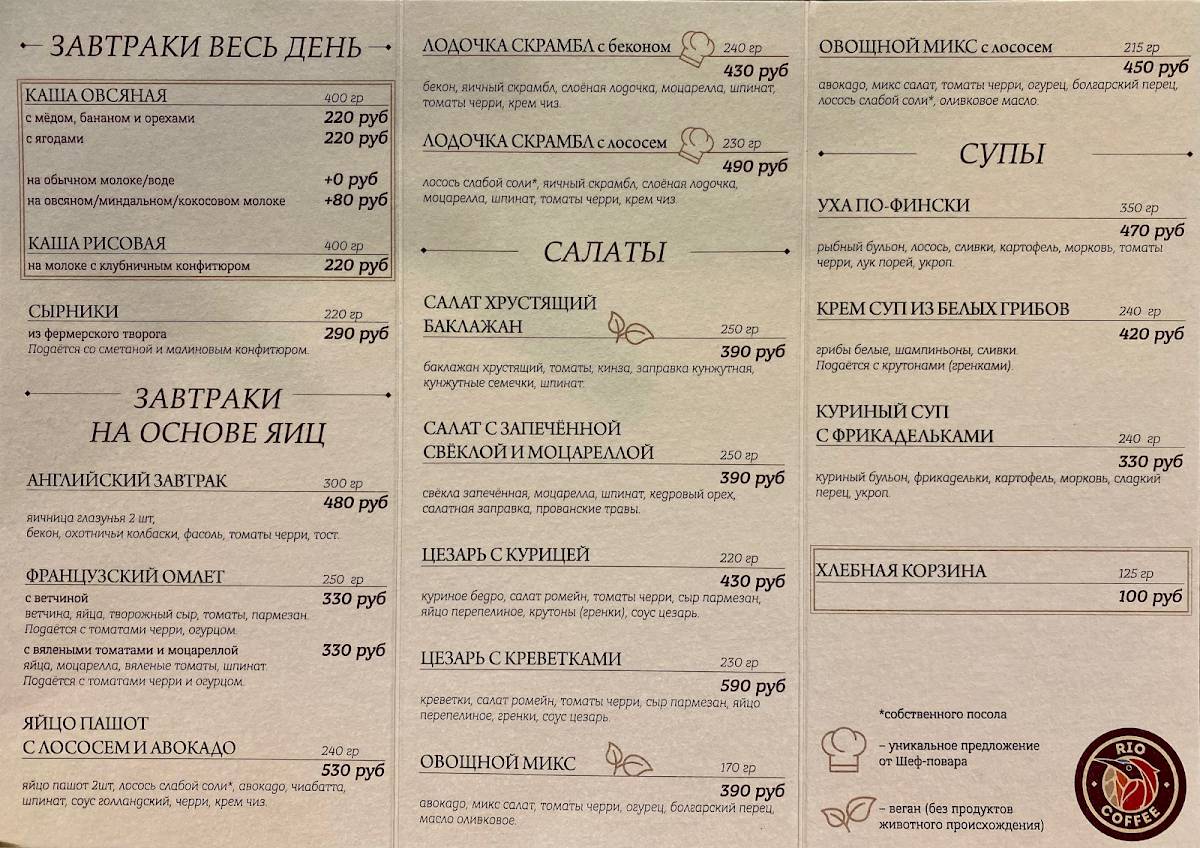 ЗАВТРАКИ ВЕСЬ ДЕНЬ
КАША ОВСЯНАЯ 400 гр
с мёдом, бананом и орехами 220 руб
с ягодами 220 руб
на обычном молоке/воде +0 руб
на овсяном/миндальном/кокосовом молоке +80 руб
КАША РИСОВАЯ 400 гр
на молоке с клубничным конфитюром 220 руб
СЫРНИКИ 220 гр
из фермерского творога 290 руб
Подаётся со сметаной и малиновым конфитюром.
ЗАВТРАКИ
НА ОСНОВЕ ЯИЦ
АНГЛИЙСКИЙ ЗАВТРАК 300 гр
480 руб
яичница глазунья 2 шт,
бекон, охотничьи колбаски, фасоль, томаты черри, тост.
ФРАНЦУЗСКИЙ ОМЛЕТ 250 гр
с ветчиной 330 руб
ветчина, яйца, творожный сыр, томаты, пармезан.
Подаётся с томатами черри, огурцом.
с вялеными томатами и моцареллой 330 руб
яйца, моцарелла, вяленые томаты, шпинат.
Подаётся с томатами черри и огурцом.
ЯЙЦО ПАШОТ
С ЛОСОСЕМ И АВОКАДО 240 гр
530 руб
яйцо пашот 2шт, лосось слабой соли*, авокадо, чиабатта,
шпинат, соус голландский, черри, крем чиз.
ЛОДОЧКА СКРАМБЛ с беконом 240 гр
430 руб
бекон, яичный скрамбл, слоёная лодочка, моцарелла, шпинат,
томаты черри, крем чиз.
ЛОДОЧКА СКРАМБЛ с лососем 230 гр
490 руб
лосось слабой соли*, яичный скрамбл, слоёная лодочка,
моцарелла, шпинат, томаты черри, крем чиз.
САЛАТЫ
САЛАТ ХРУСТЯЩИЙ
БАКЛАЖАН 250 гр
390 руб
баклажан хрустящий, томаты, кинза, заправка кунжутная,
кунжутные семечки, шпинат.
САЛАТ С ЗАПЕЧЁННОЙ
СВЁКЛОЙ И МОЦАРЕЛЛОЙ 250 гр
390 руб
свёкла запечённая, моцарелла, шпинат, кедровый орех,
салатная заправка, прованские травы.
ЦЕЗАРЬ С КУРИЦЕЙ 220 гр
430 руб
куриное бедро, салат ромейн, томаты черри, сыр пармезан,
яйцо перепелиное, крутоны (гренки), соус цезарь.
ЦЕЗАРЬ С КРЕВЕТКАМИ 230 гр
590 руб
креветки, салат ромейн, томаты черри, сыр пармезан, яйцо
перепелиное, гренки, соус цезарь.
ОВОЩНОЙ МИКС 170 гр
390 руб
авокадо, микс салат, томаты черри, огурец, болгарский перец,
масло оливковое.
ОВОЩНОЙ МИКС с лососем 215 гр
450 руб
авокадо, микс салат, томаты черри, огурец, болгарский перец,
лосось слабой соли*, оливковое масло.
СУПЫ
УХА ПО-ФИНСКИ 350 гр
470 руб
рыбный бульон, лосось, сливки, картофель, морковь, томаты
черри, лук порей, укроп.
КРЕМ СУП ИЗ БЕЛЫХ ГРИБОВ 240 гр
420 руб
грибы белые, шампиньоны, сливки.
Подаётся с крутонами (гренками).
КУРИНЫЙ СУП
С ФРИКАДЕЛЬКАМИ 240 гр
330 руб
куриный бульон, фрикадельки, картофель, морковь, сладкий
перец, укроп.
ХЛЕБНАЯ КОРЗИНА 125 гр
100 руб
*собственного посола
– уникальное предложение
от Шеф-повара
– веган (без продуктов
животного происхождения)
RIO
COFFEE